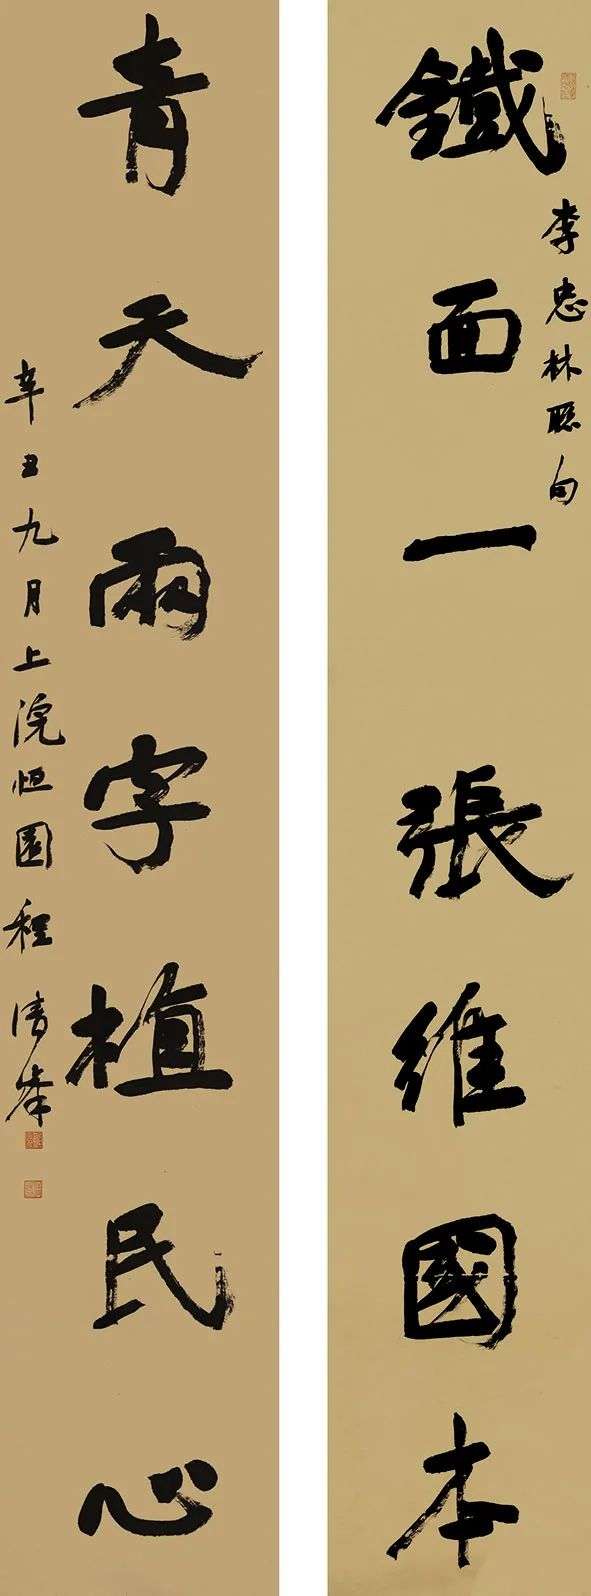 鐵面一張維國本
李忠林聯句
青天兩字植民心
辛丑九月上浣恒園程清峯